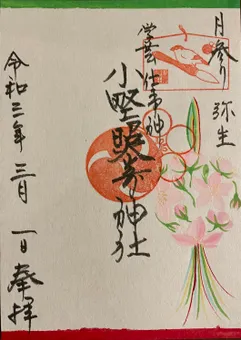 月参り
弥生
学芸 仕事の神
小野照崎神社
令和三年 三月 一日 奉拝